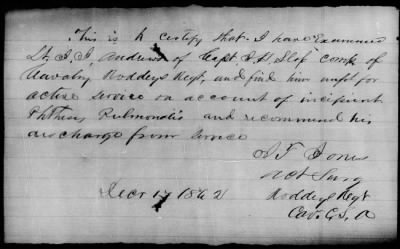 This is to certify that I have Examined
Lt J. J. Andrews of Capt. F. H. comp of
Cavalry Roddeys Regt, and find him unfit for
active service on account of incipient
Phthisis Pulmonalis and recommend his
discharge from service
Jones
Act Surg
Decr 17 1862
Roddeys Regt
Cav. C, S, A